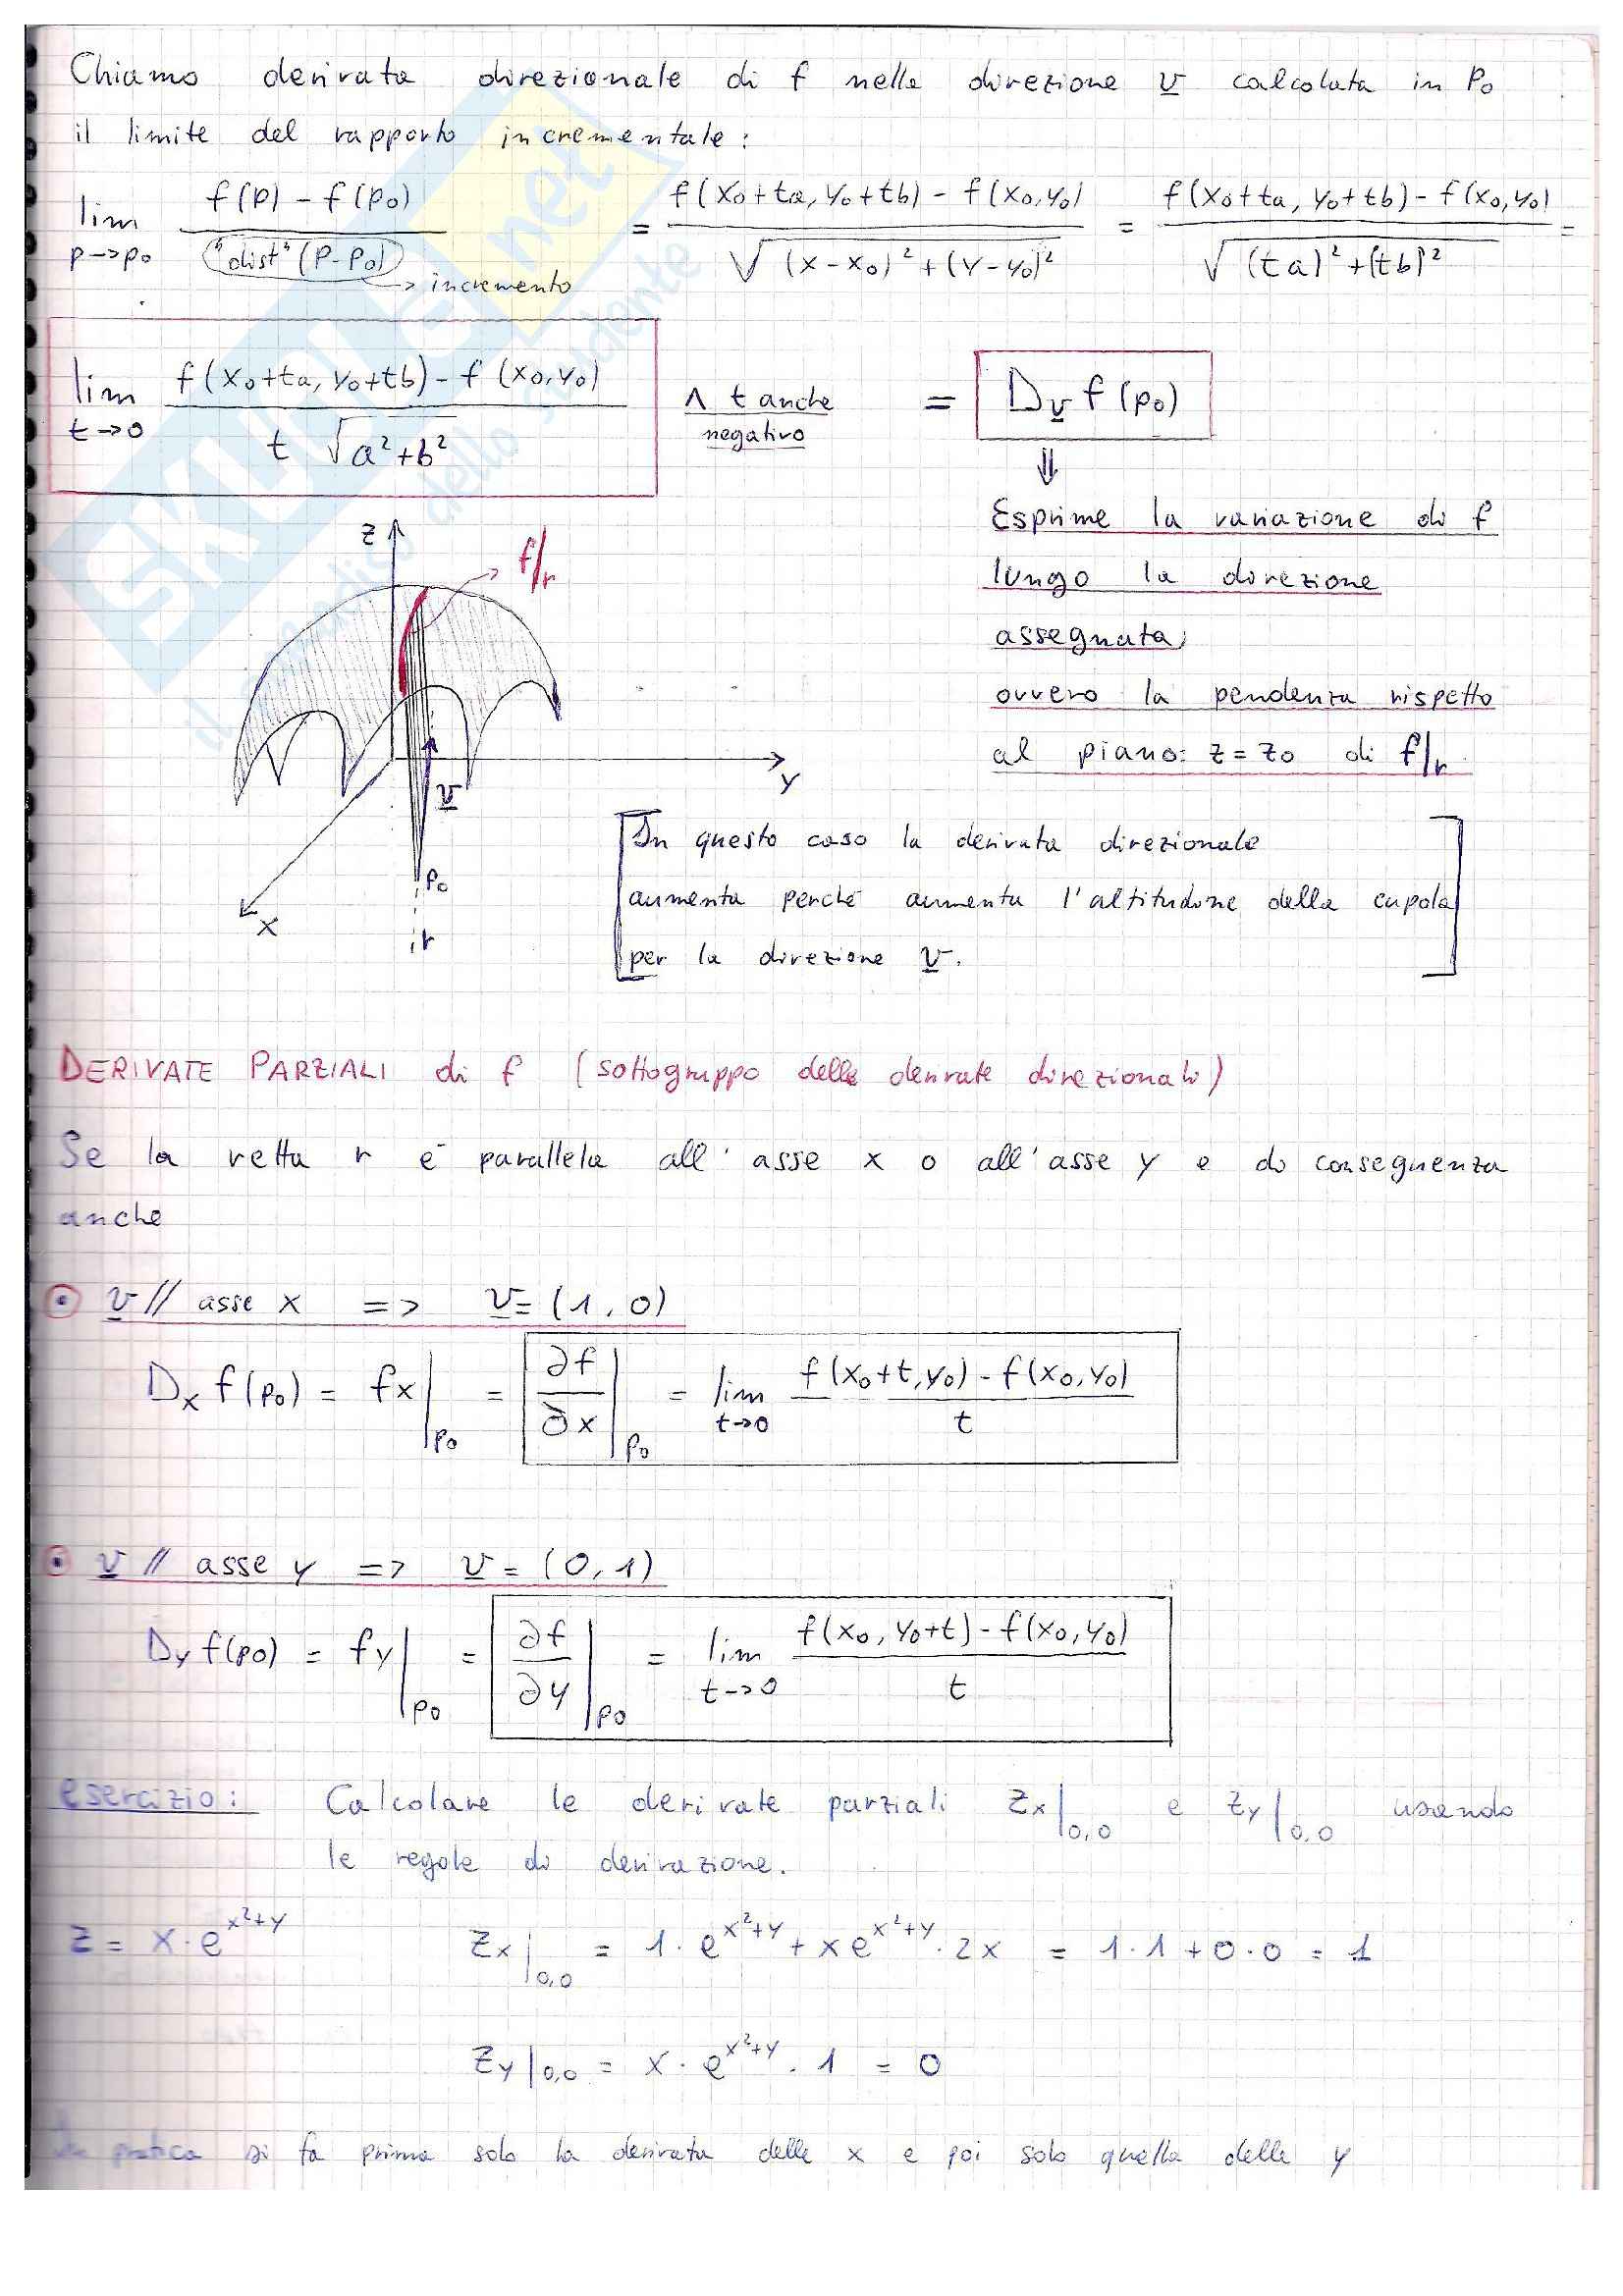 Chiamo derivata direzionale di f nella direzione v calcolata in P₀
il limite del rapporto incrementale:
lim p→p₀ f(p) - f(p₀) / "dist" (P-P₀) → incremento = f(x₀+ta, y₀+tb) - f(x₀,y₀) / √(x-x₀)²+(y-y₀)² = f(x₀+ta, y₀+tb) - f(x₀,y₀) / √(ta)²+(tb)² =
lim t→0 f(x₀+ta, y₀+tb) - f(x₀,y₀) / t √a²+b² ∧ t anche negativo = D_v f(p₀)
⇓
Esprime la variazione di f
lungo la direzione
assegnata,
ovvero la pendenza rispetto
al piano: z = z₀ di f/r
z
f/r
y
v
P₀
x
r
In questo caso la derivata direzionale
aumenta perché aumenta l'altitudine della cupola
per la direzione v.
DERIVATE PARZIALI di f (sottogruppo delle derivate direzionali)
Se la retta r è parallela all'asse x o all'asse y e di conseguenza
anche
v // asse x => v = (1, 0)
Dx f(p₀) = fx|p₀ = ∂f/∂x|p₀ = lim t→0 f(x₀+t,y₀) - f(x₀,y₀) / t
v // asse y => v = (0,1)
Dy f(p₀) = fy|p₀ = ∂f/∂y|p₀ = lim t→0 f(x₀, y₀+t) - f(x₀,y₀) / t
esercizio: Calcolare le derivate parziali Zx|0,0 e Zy|0,0 usando
le regole di derivazione.
z = x·e^(x²+y) Zx|0,0 = 1·e^(x²+y) + xe^(x²+y)·2x = 1·1+0·0 = 1
Zy|0,0 = x·e^(x²+y)·1 = 0
In pratica si fa prima solo la derivata delle x e poi solo quella delle y
SKUOLA.net